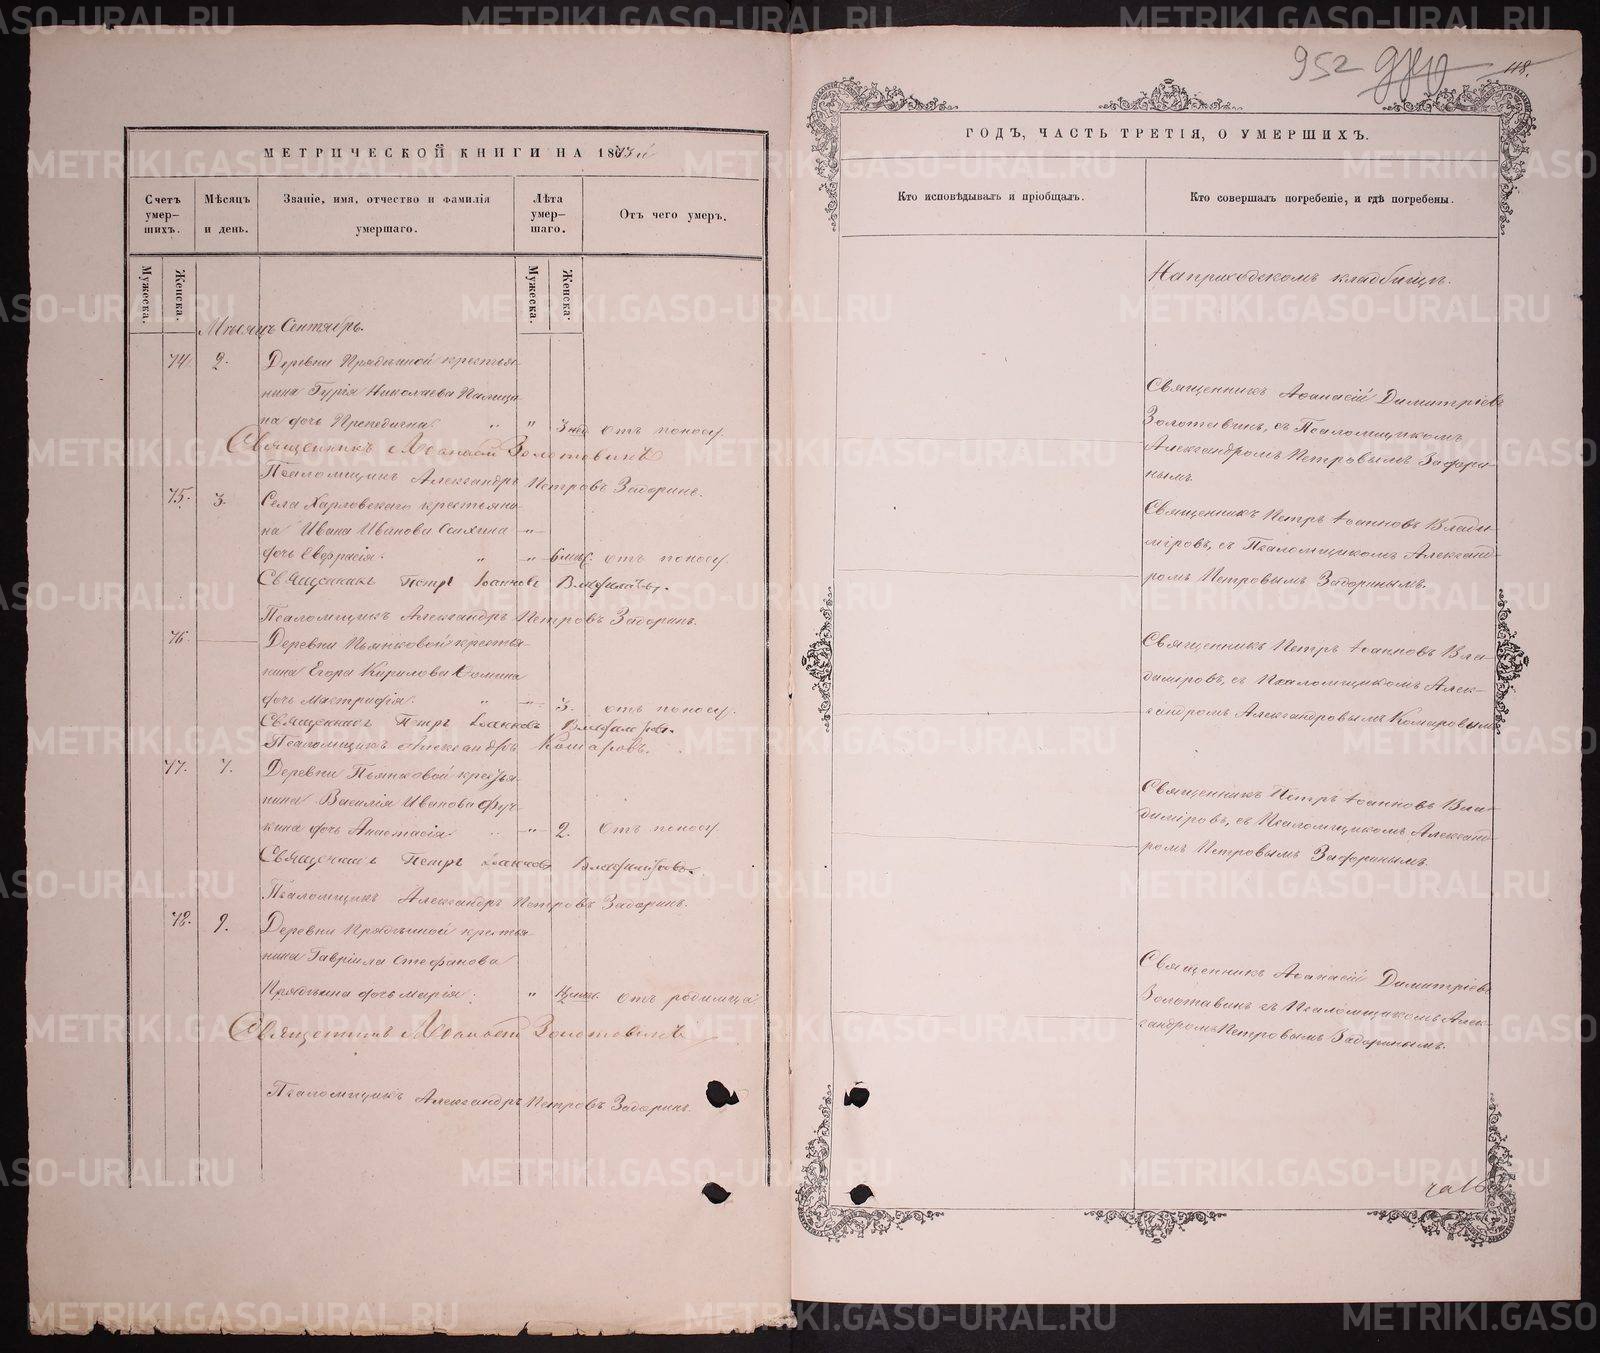 МЕТРИЧЕСКОЙ КНИГИ НА 1873й
Счетъ умер-шихъ.
Мѣсяцъ и день.
Званіе, имя, отчество и фамилія умершаго.
Лѣта умер-шаго.
Отъ чего умеръ.
Мужеска.
Женска.
Мужеска.
Женска.
Мѣсяцъ Сентябрь.
74 2. Деревни Прядеиной крестья-
нина Гурія Николаева Палици-
на дочь " " 3 нед отъ поносу.
Священникъ Аѳанасій Золотавинъ
Псаломщикъ Александръ Петровъ Задоринъ.
75. 3. Села Харловскаго крестьяни-
на Ивана Иванова
дочь Евфрасія. " " 6 мѣс. отъ поносу.
Священникъ Петръ Іоанновъ Владиміровъ.
Псаломщикъ Александръ Петровъ Задоринъ.
76. Деревни Пьянковой крестья-
нина Егора Кирилова Сомина
дочь " " 3. отъ поносу.
Священникъ Петръ Іоанновъ Владиміровъ.
Псаломщикъ Александръ Комаровъ.
77. 7. Деревни Пьянковой крестья-
нина Василія Иванова Фуч-
кина дочь Анастасія " " 2. отъ поносу.
Священникъ Петръ Іоанновъ Владиміровъ.
Псаломщикъ Александръ Петровъ Задоринъ.
78. 9. Деревни Прядеиной крестья-
нина Гавріила Стефанова
Прядеина дочь Марія. " отъ родимца
Священникъ Аѳанасій Золотавинъ
Псаломщикъ Александръ Петровъ Задоринъ.
952
118.
ГОДЪ, ЧАСТЬ ТРЕТІЯ, О УМЕРШИХЪ.
Кто исповѣдывалъ и пріобщалъ.
Кто совершалъ погребеніе, и гдѣ погребены.
На приходскомъ кладбищѣ.
Священникъ Аѳанасій Димитріевъ
Золотавинъ, съ Псаломщикомъ
Александромъ Петровымъ Задори-
нымъ.
Священникъ Петръ Іоанновъ Влади-
міровъ, съ Псаломщикомъ Александ-
ромъ Петровымъ Задоринымъ.
Священникъ Петръ Іоанновъ Вла-
диміровъ, съ Псаломщикомъ Алек-
сандромъ Александровымъ Комаровымъ
Священникъ Петръ Іоанновъ Вла-
диміровъ, съ Псаломщикомъ Александ-
ромъ Петровымъ Задоринымъ.
Священникъ Аѳанасій Димитріевъ
Золотавинъ съ Псаломщикомъ Алек-
сандромъ Петровымъ Задоринымъ.
METRIKI.GASO-URAL.RU